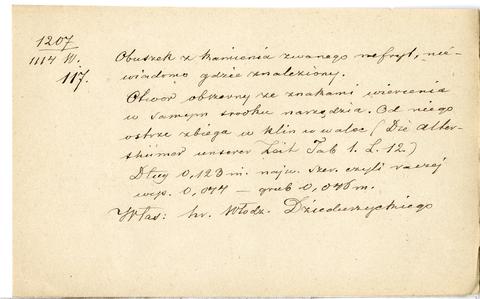 1207
1114 W.
117.
Obuszek z kamienia zwanego nefryt, nie-
wiadomo gdzie znaleziony.
Otwór obszerny ze znakami wiercenia
w samym środku narzędzia. Od niego
ostrze zbiega w klin w walec (Die Alter-
thümer unserer Zeit Tab 1. L. 12)
Dług 0,123 m. najw. szer. czyli raczej
wys. 0,044 — grub 0,046 m.
Włas: hr. Włodz. Dzieduszyckiego